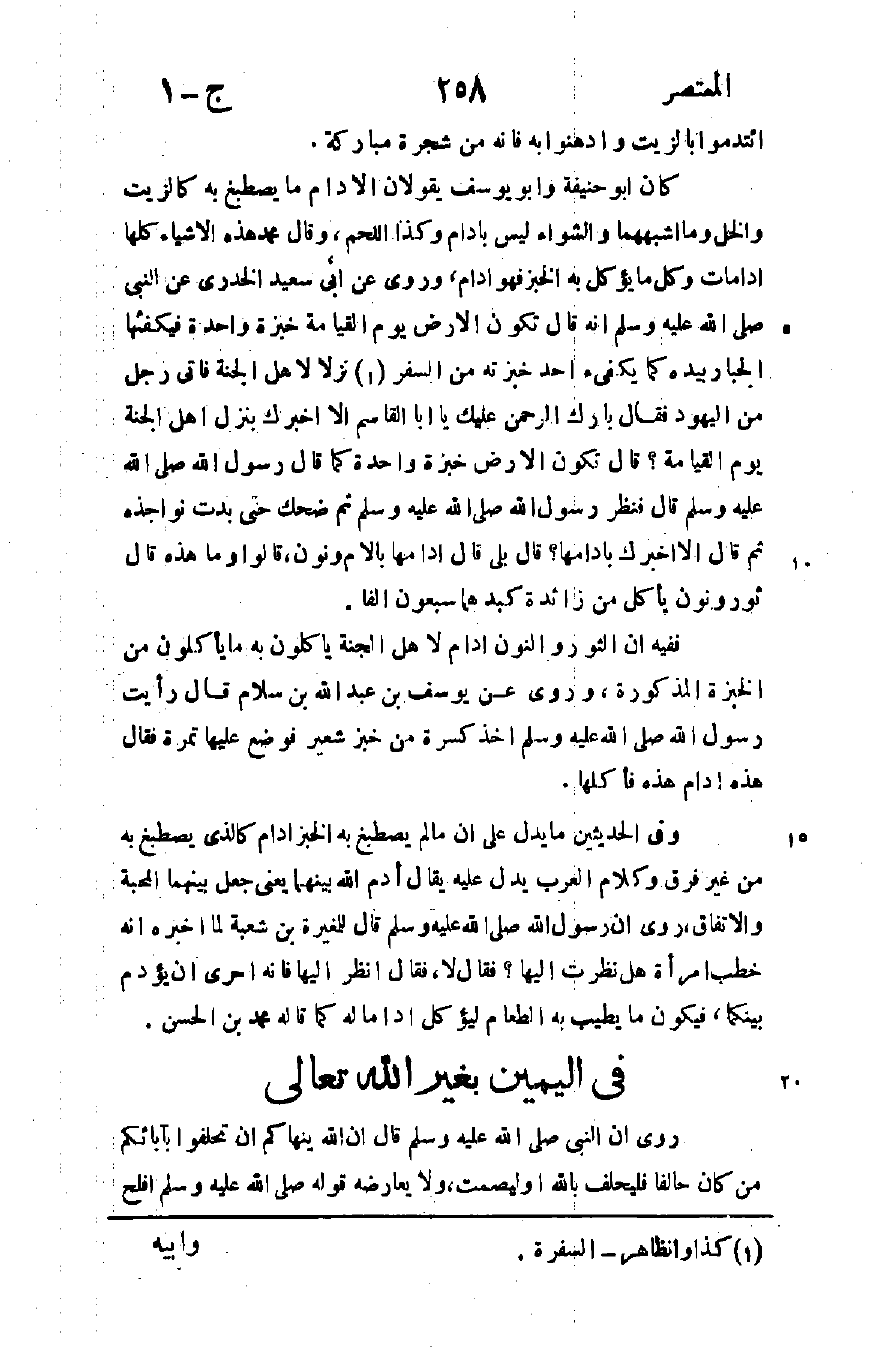 المعتصر ٢٥٨ ج – ١
ائتدموا بالزيت وادهنوا به فانه من شجرة مباركة .
كان ابو حنيفة وابو يوسف يقولان الادام ما يصطبغ به كالزيت
والخل وما اشبههما والشواء ليس بادام وكذا اللحم، وقال محمد هذه الاشياء كلها
ادامات وكل ما يؤكل به الخبز فهو ادام، وروى عن أبى سعيد الخدرى عن النبى
صلى الله عليه وسلم انه قال تكون الارض يوم القيامة خبزة واحدة فيكفئها ٥
الجبار بيده كما يكفىء احد خبزته من السفر (١) نزلا لاهل الجنة فاتى رجل
من اليهود فقال بارك الرحمن عليك يا ابا القاسم الا اخبرك بنزل اهل الجنة
يوم القيامة ؟ قال تكون الارض خبزة واحدة كما قال رسول الله صلى الله
عليه وسلم قال فنظر رسول الله صلى الله عليه وسلم ثم ضحك حتى بدت نواجذه
ثم قال الا اخبرك بادامها؟ قال بلى قال ادامها بالام ونون، قالوا وما هذه قال ١٠
ثور ونون يأكل من زائدة كبدهما سبعون الفا .
ففيه ان الثور والنون ادام لاهل الجنة ياكلون به ما يأكلون من
الخبزة المذكورة، وروى عن يوسف بن عبد الله بن سلام قال رأيت
رسول الله صلى الله عليه وسلم اخذ كسرة من خبز شعير فوضع عليها تمرة فقال
هذه ادام هذه فأكلها .
وفى الحديثين ما يدل على ان مالم يصطبغ به الخبز ادام كالذى يصطبغ به ١٥
من غير فرق وكلام العرب يدل عليه يقال أدم الله بينهما يعنى جعل بينهما المحبة
والاتفاق، روى ان رسول الله صلى الله عليه وسلم قال للمغيرة بن شعبة لما اخبره انه
خطب امرأة هل نظرت اليها ؟ فقال لا، فقال انظر اليها فانه احرى ان يؤدم
بينكما، فيكون ما يطيب به الطعام ليؤكل اداما له كما قاله محمد بن الحسن .
فى اليمين بغير الله تعالى ٢٠
روى ان النبى صلى الله عليه وسلم قال ان الله ينهاكم ان تحلفوا بآبائكم
من كان حالفا فليحلف بالله اوليصمت، ولا يعارضه قوله صلى الله عليه وسلم افلح
(١) كذا والظاهر – السفرة . وابيه